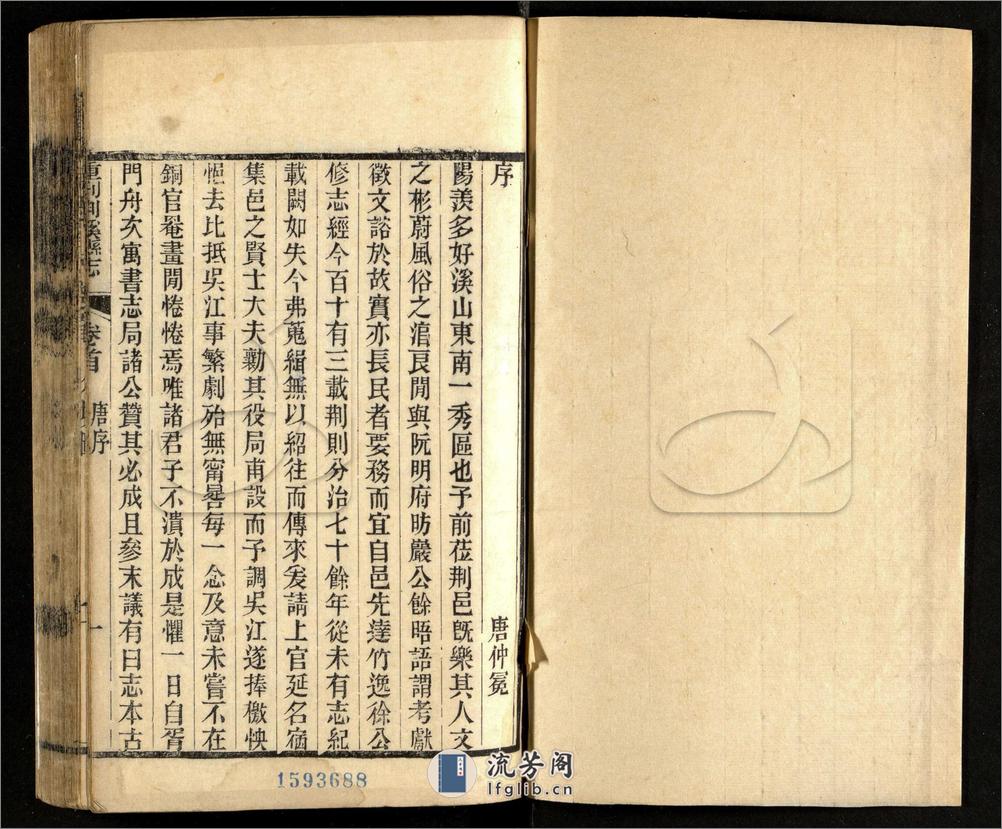 序
唐仲冕
陽羨多好溪山東南一秀區也予前莅荆邑旣樂其人文
之彬蔚風俗之淳良閒與阮明府昉巖公餘晤語謂考獻
徵文諮於故實亦長民者要務而宜自邑先達竹逸徐公
修志經今百十有三載荆則分治七十餘年從未有志紀
載闕如失今弗蒐緝無以紹往而傳來爰請上官延名宿
集邑之賢士大夫勷其役局甫設而予調吳江遂捧檄怏
悒去比抵吳江事繁劇殆無甯晷每一念及意未嘗不在
銅官罨畫閒惓惓焉唯諸君子不潰於成是懼一日自胥
門舟次寓書志局諸公贊其必成且參末議有曰志本古
重刊荆溪縣志
卷首
唐序
一
1593688
流芳阁
lfglib.cn